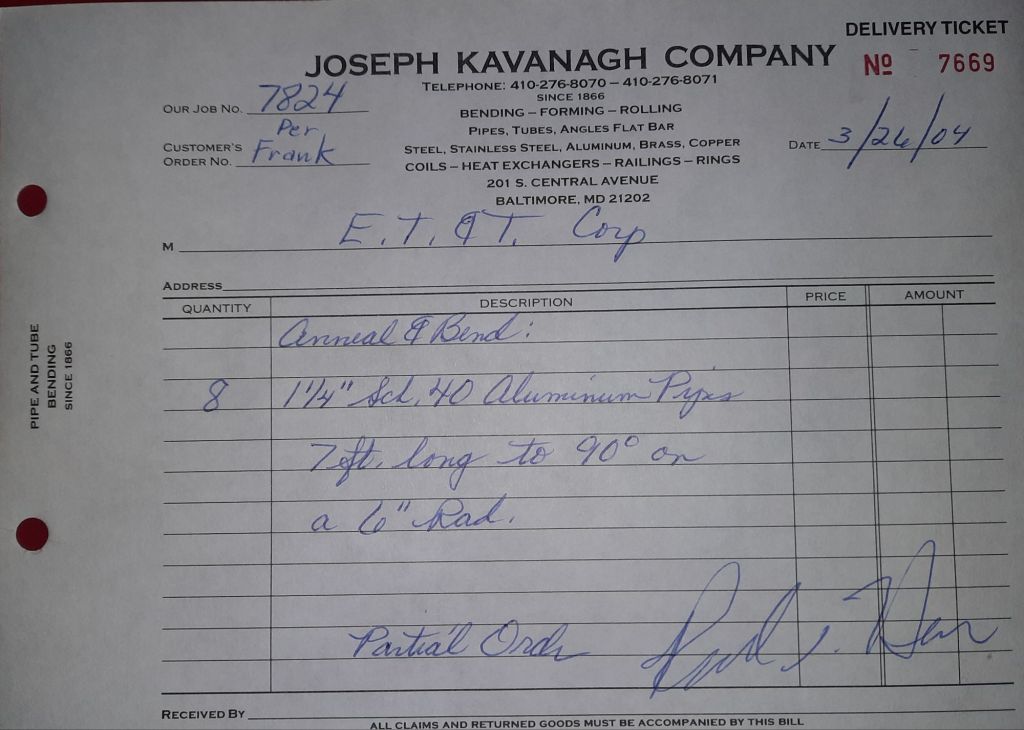 DELIVERY TICKET
JOSEPH KAVANAGH COMPANY
Nº 7669
TELEPHONE: 410-276-8070 – 410-276-8071
SINCE 1866
OUR JOB NO. 7824
BENDING – FORMING – ROLLING
PIPES, TUBES, ANGLES FLAT BAR
CUSTOMER'S ORDER NO. Per Frank
STEEL, STAINLESS STEEL, ALUMINUM, BRASS, COPPER
DATE 3/26/04
COILS – HEAT EXCHANGERS – RAILINGS – RINGS
201 S. CENTRAL AVENUE
BALTIMORE, MD 21202
M E. T. & T. Corp
ADDRESS
QUANTITY DESCRIPTION PRICE AMOUNT
Anneal & Bend:
8 1 1/4" Sch. 40 Aluminum Pipes
7 ft. long to 90° on
a 6" Rad.
Partial Order
RECEIVED BY
ALL CLAIMS AND RETURNED GOODS MUST BE ACCOMPANIED BY THIS BILL
PIPE AND TUBE
BENDING
SINCE 1866